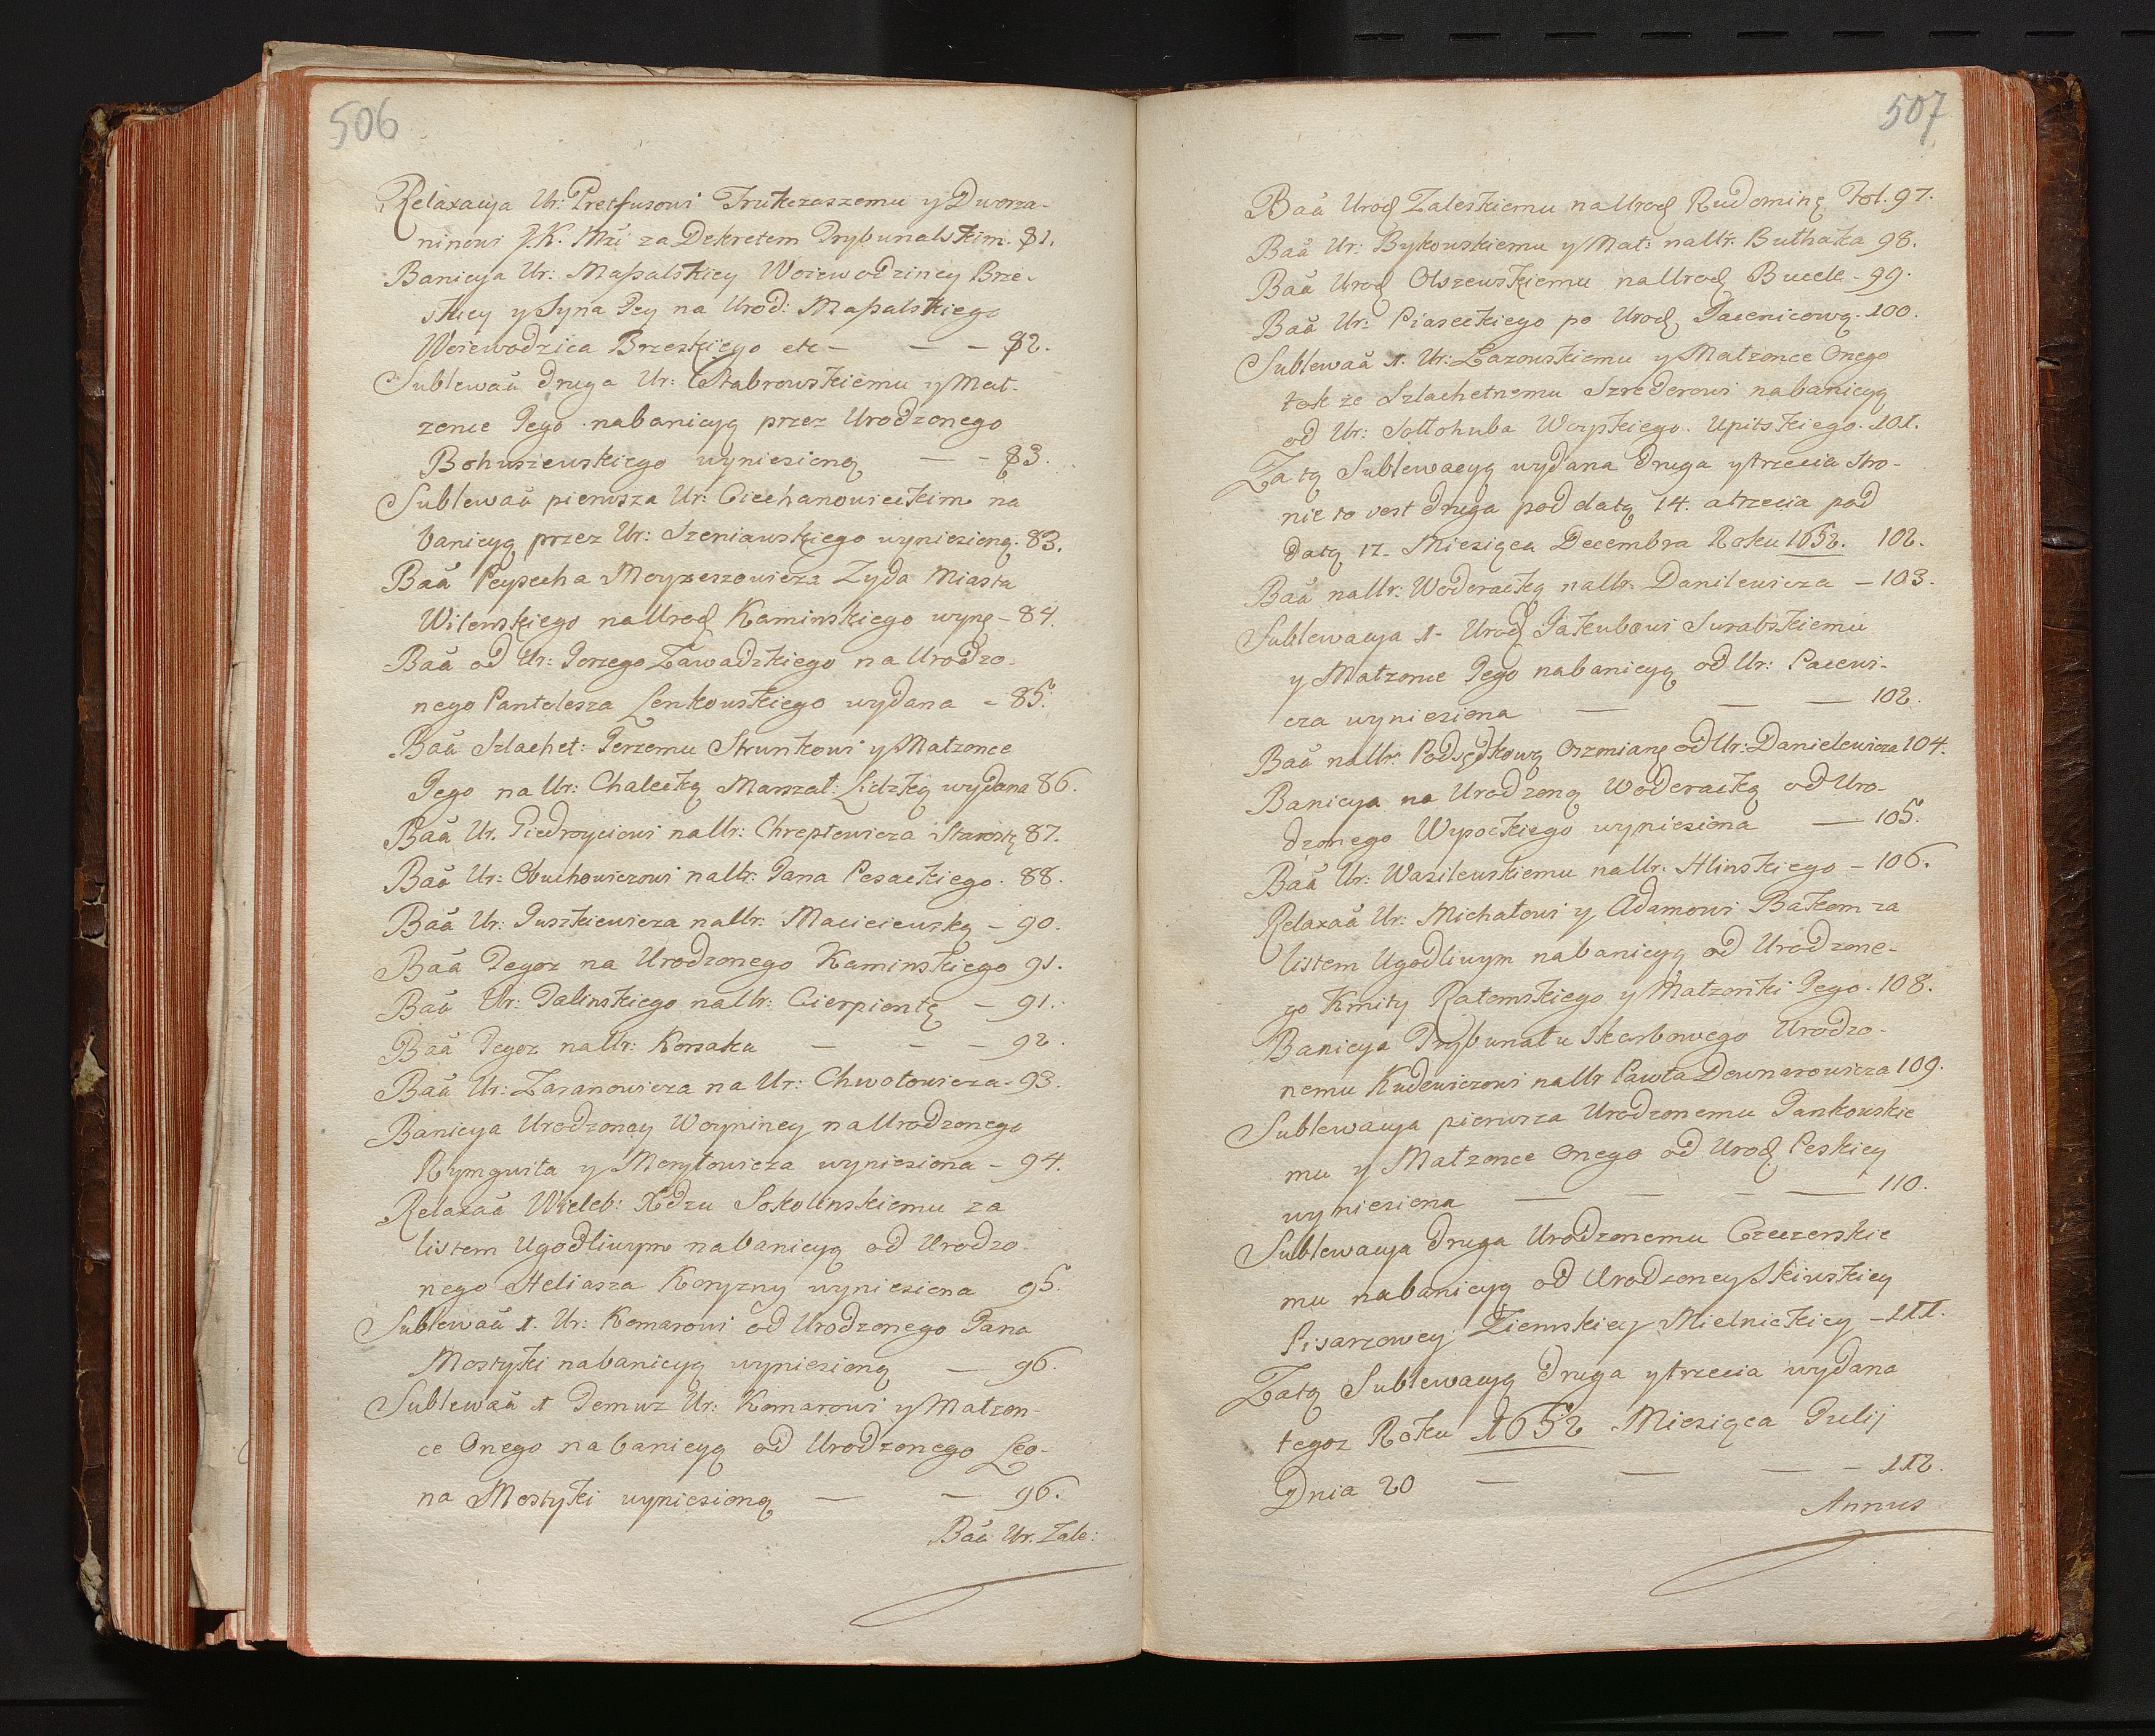 506
Relaxacya Ur: Pretfusowi Trukczaszemu y Dworza-
ninowi J.K. Mći za Dekretem Trybunalskim. 81.
Banicya Ur: Massalskiey Woiewodziney Brze-
skiey y Syna Jey na Urod: Massalskiego
Woiewodzica Brzeskiego etc — — — 82.
Sublewaa druga Ur: Stabrowskiemu y Mał-
zonce Jego na banicyą przez Urodzonego
Bohuszewskiego wyniesioną — — 83.
Sublewaa pierwsza Ur: Ciechanowieckim na
banicyą przez Ur: Szeniawskiego wyniesioną. 83.
Baa Peysecha Moyzeszowicza Zyda Miasta
Wilenskiego na Urod Kaminskiego wynę – 84.
Baa od Ur: Jerzego Zawadzkiego na Urodzo-
nego Pantelesza Lenkowskiego wydana – 85.
Baa Szlachet: Jerzemu Strunkowi y Małzonce
Jego na Ur: Chalecką Marszał: Lidzką wydana 86.
Baa Ur. Piedrzyciowi na Ur: Chreptewicza Starostę 87.
Baa Ur: Obuchowiczowi na Ur: Jana Pesackiego. 88.
Baa Ur: Juszkiewicza na Ur: Macieiewską – 90.
Baa Tegoz na Urodzonego Kaminskiego 91.
Baa Ur: Jalinskiego na Ur: Cierpientę – 91.
Baa Tegoz na Ur: Korsaka — — — 92.
Baa Ur: Zaranowicza na Ur: Chwołowicza – 93.
Banicya Urodzoney Woyniney na Urodzonego
Rymgwiła y Moryłowicza wyniesiona – 94.
Relaxaa Wieleb: Xdzu Sokolinskiemu za
listem Ugodliwym na banicyą od Urodzo-
nego Heliasza Koryzny wyniesiona 95.
Sublewaa 1. Ur: Komarowi od Urodzonego Jana
Mostyki na banicyą wyniesioną — 96.
Sublewaa 1 Temuz Ur: Komarowi y Małzon-
ce Onego na banicyą od Urodzonego Leo-
na Mostyki wyniesioną — — 96.
Baa Ur. Zale:
507
Baa Urod Zaleskiemu na Urod Rudominę Fol. 97.
Baa Ur: Bykowskiemu y Mał: na Ur. Buthaka 98.
Baa Urod Olszewskiemu na Urod Bucele – 99.
Baa Ur: Piaseckiego po Urod Jacenicową. 100.
Sublewaa 1. Ur: Lazowskiemu y Małzonce Onego
tak ze Szlachetnemu Szrederowi na banicyą
od Ur: Sołłohuba Woyskiego Upitskiego. 101.
Za tą Sublewacyą wydana druga y trzecia stro-
nie to iest druga pod datą 14. a trzecia pod
datą 17. Miesiąca Decembra Roku 1652. 102.
Baa na Ur: Woderacką na Ur: Danilewicza – 103.
Sublewacya 1. Urod Jakubowi Surabskiemu
y Małzonce Jego na banicyą od Ur: Pacewi-
cza wyniesiona — — — 102.
Baa na Ur: Podsędkową Oszmianę od Ur: Danielewicza 104.
Banicya na Urodzoną Woderacką od Uro-
dzonego Wysockiego wyniesiona — 105.
Baa Ur: Wasilewskiemu na Ur: Hlinskiego – 106.
Relaxaa Ur: Michałowi y Adamowi Bakom za
listem Ugodliwym na banicyą od Urodzone-
go Kmity Ratomskiego y Małzonki Jego. 108.
Banicya Trybunału Skarbowego Urodzo-
nemu Kudewiczowi na Ur Pawła Downarowicza 109.
Sublewacya pierwsza Urodzonemu Jankowskie
mu y Małzonce Onego od Urod Peskiey
wyniesiona — — — 110.
Sublewacya druga Urodzonemu Czeczerskie
mu na banicyą od Urodzoney Skiuskiey
Pisarzowey Ziemskiey Mielnickiey – 111.
Za tą Sublewacyą druga y trzecia wydana
tegoz Roku 1652 Miesiąca Julij
Dnia 20 — — — – 112.
Annus